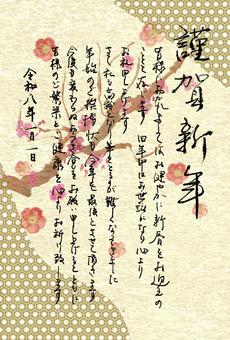 謹賀新年
皆様におかれましてはお健やかに新春をお迎えの
ことと存じます 旧年中はお世話になり心より
お礼申し上げます
さて私も高齢となり筆をとる事が難しくなってきました
年始のご挨拶状も今年で最後とさせて頂きます
今後も変わらぬお付き合いをお願い申し上げるとともに
皆様のご繁栄とご健康を心よりお祈り致します
令和八年一月一日